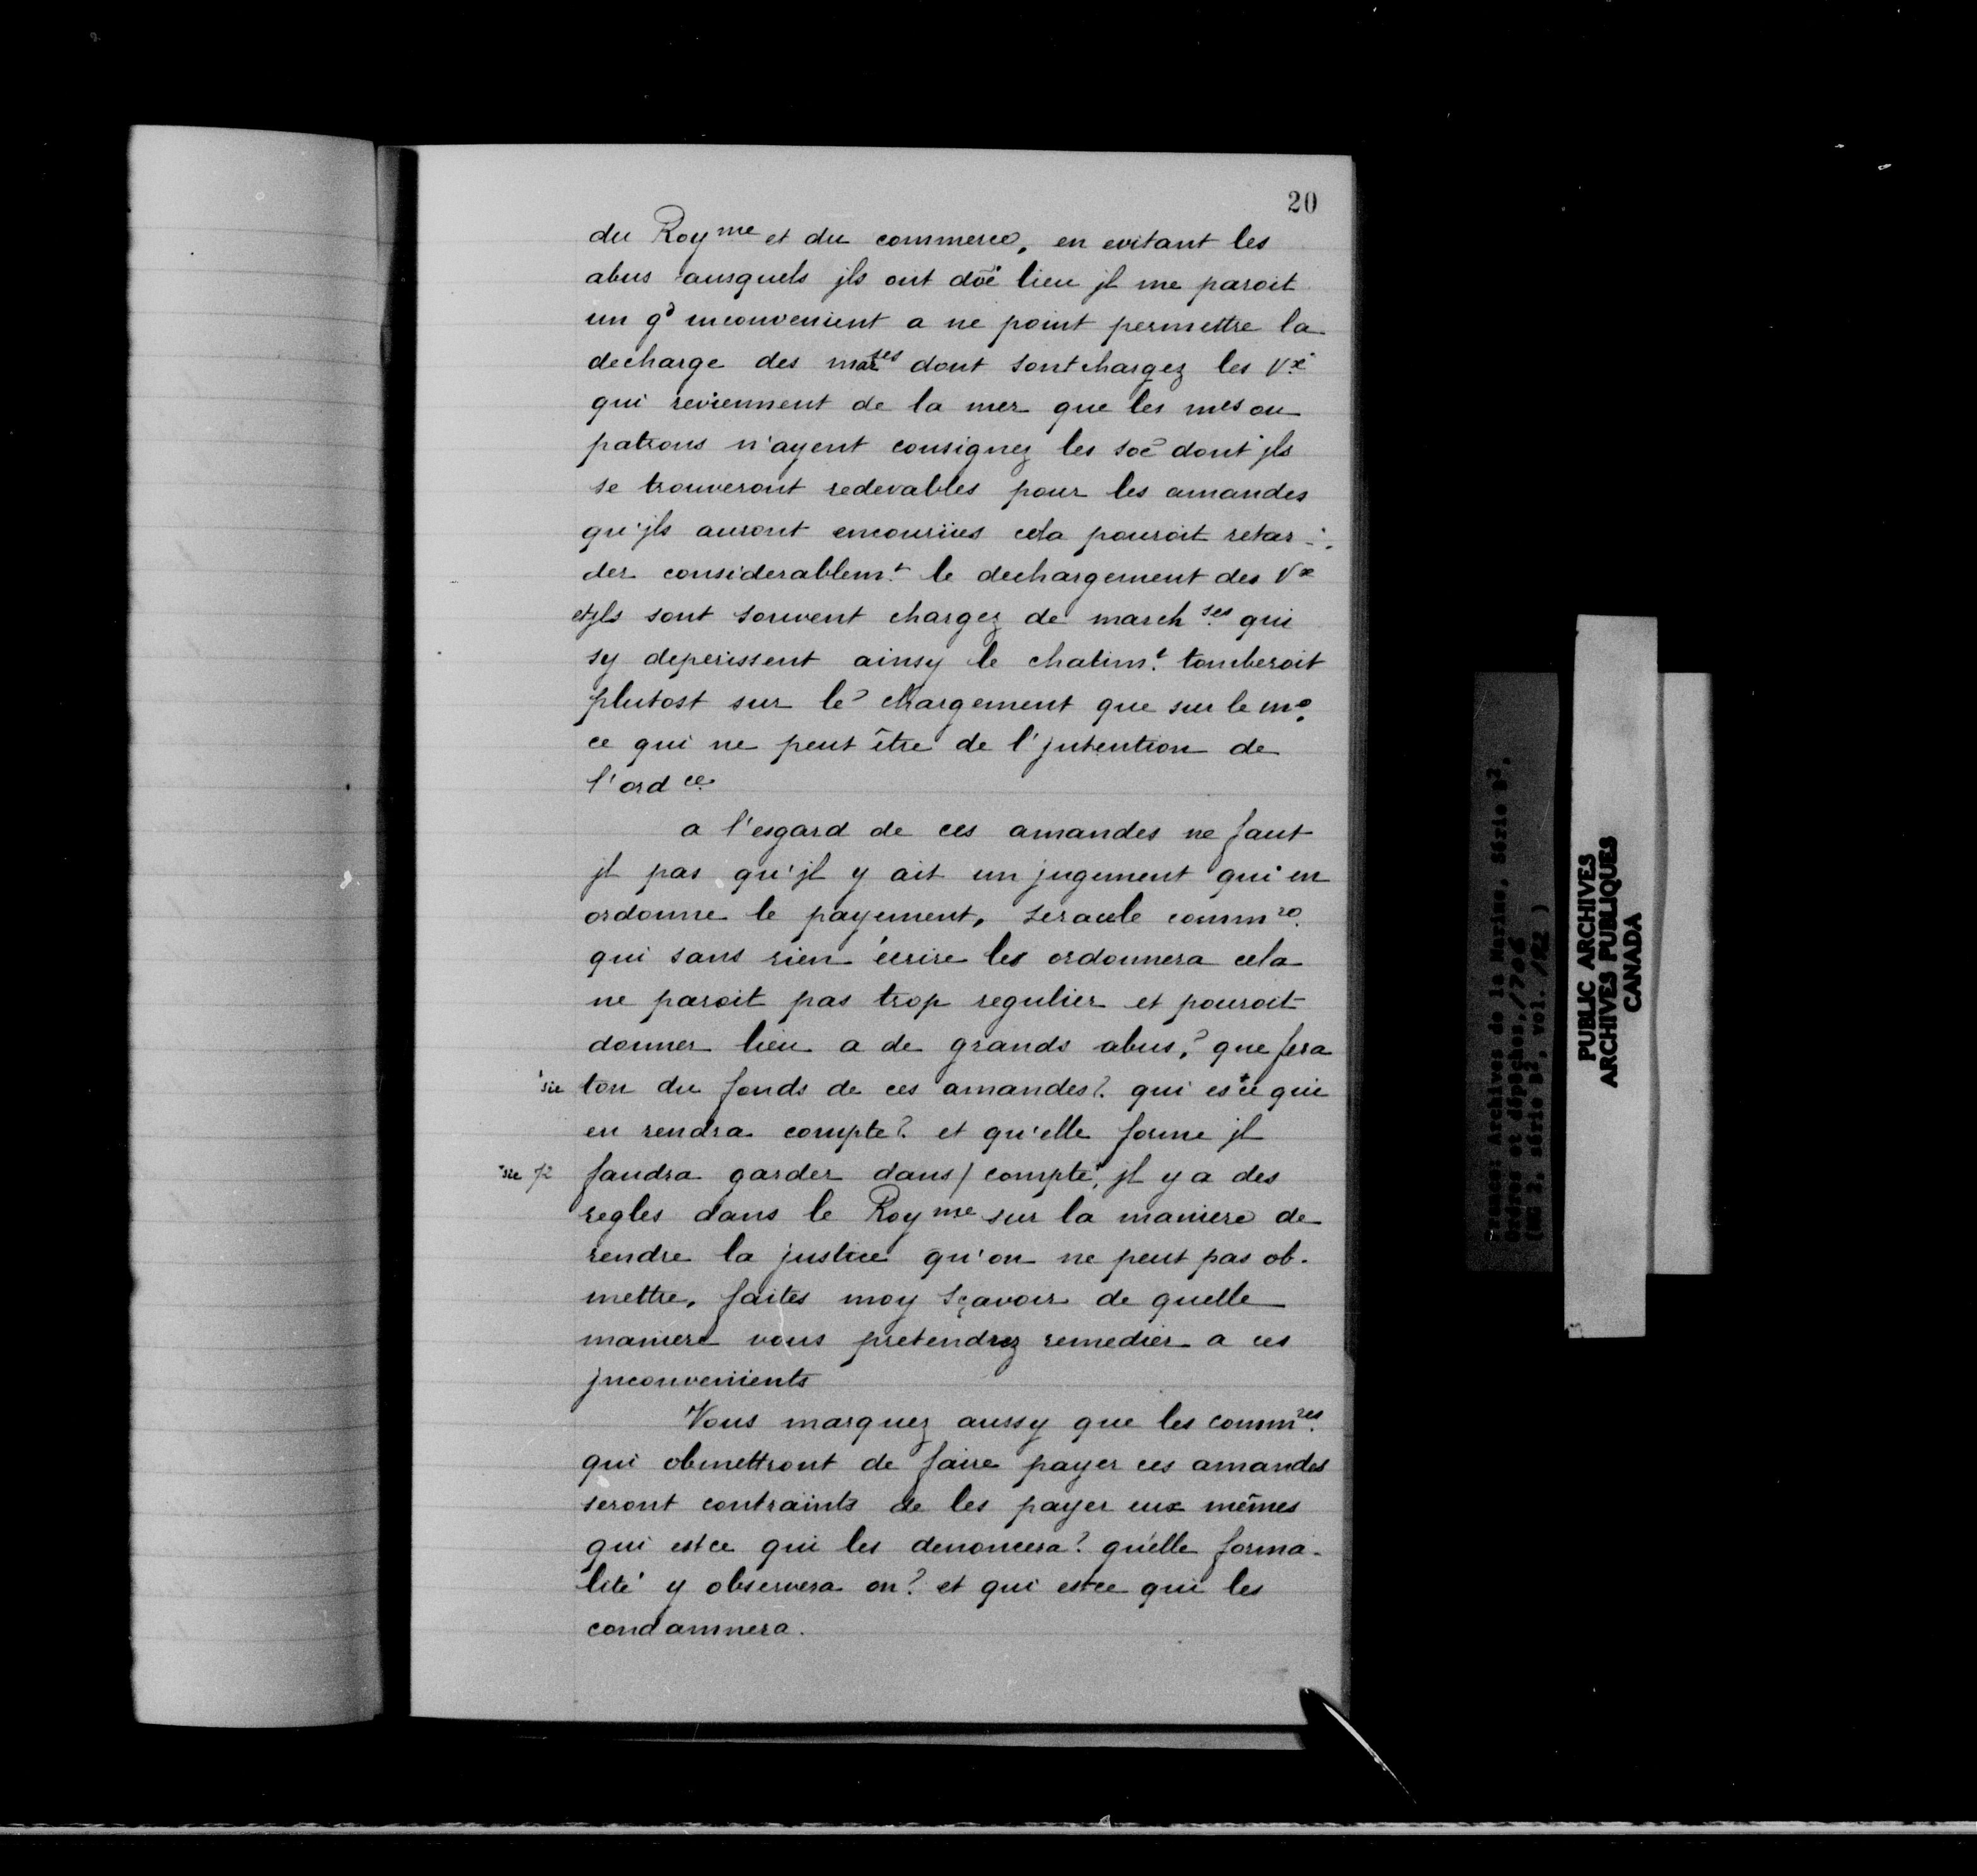 20
du Roy^me et du commerce, en evitant les
abus ausquels jls ont dõe lieu jl me paroit
un g^d inconvenient a ne point permettre la
decharge des mar^ses dont sont chargez les V^x
qui reviennent de la mer que les m^es ou
patrons n'ayent consignez les soẽ dont jls
se trouveront redevables pour les amandes
qu'jls auront encouriies cela pouroit retar-
der considerablem^t le dechargement des V^x
et jls sont souvent chargez de march^ses qui
sy deperissent ainsy le chatim^t tomberoit
plutost sur le chargement que sur le m^e
ce qui ne peut être de l'jntention de
l'ord^ce
a l'esgard de ces amandes ne faut
jl pas qu'jl y ait un jugement qui en
ordonne le payement, sera cele comm^re
qui sans rien écrire les ordonnera cela
ne paroit pas trop regulier et pouroit
donner lieu a de grands abus,? que fera
sic ton du fonds de ces amandes? qui est ce qui
en rendra compte? et qu'elle forme jl
sic faudra garder dans / compte, jl y a des
regles dans le Roy^me sur la maniere de
rendre la justice qu'on ne peut pas ob-
mettre, faites moy sçavoir de quelle
maniere vous pretendrez remedier a ces
jnconvenients
Vous marquez aussy que les comm^res
qui obmettront de faire payer ces amandes
seront contraints de les payer eux mêmes
qui est ce qui les denoncera? qu'elle forma-
lité y observera on? et qui est ce qui les
condamnera.
France: Archives de la Marine, Série B²,
Ordres et dépêches, 1706
(MG 2, série B², vol. 182)
PUBLIC ARCHIVES
ARCHIVES PUBLIQUES
CANADA